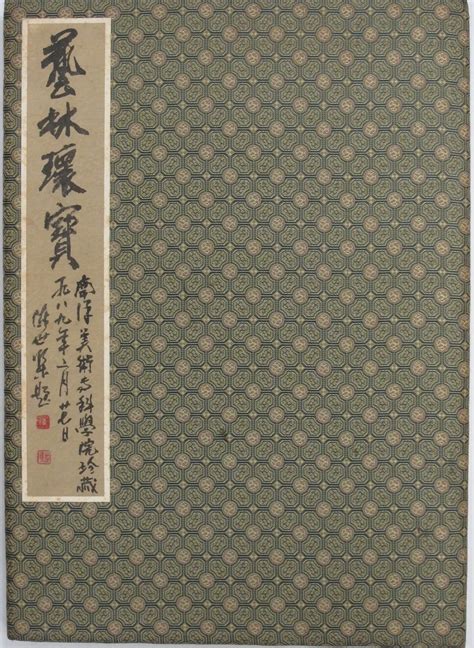 藝林瓌寶
南洋美術专科學院珍藏
一九八九年二月廿七日
陳世集題